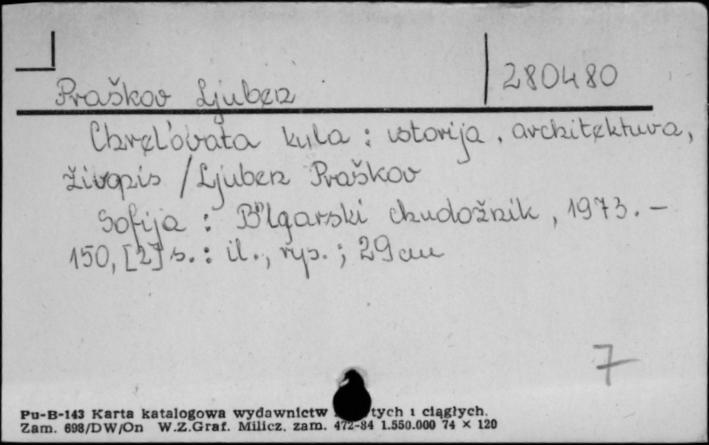 Praškov Ljuben
280480
Chrel'ovata kula : istorija, architektura,
živopis / Ljuben Praškov
Sofija : B"lgarski chudožnik, 1973. –
150, [2] s. : il., rys. ; 29 cm
7
Pu-B-143 Karta katalogowa wydawnictw tych i ciągłych.
Zam. 698/DW/On W.Z.Graf. Milicz. zam. 472-84 1.550.000 74 × 120